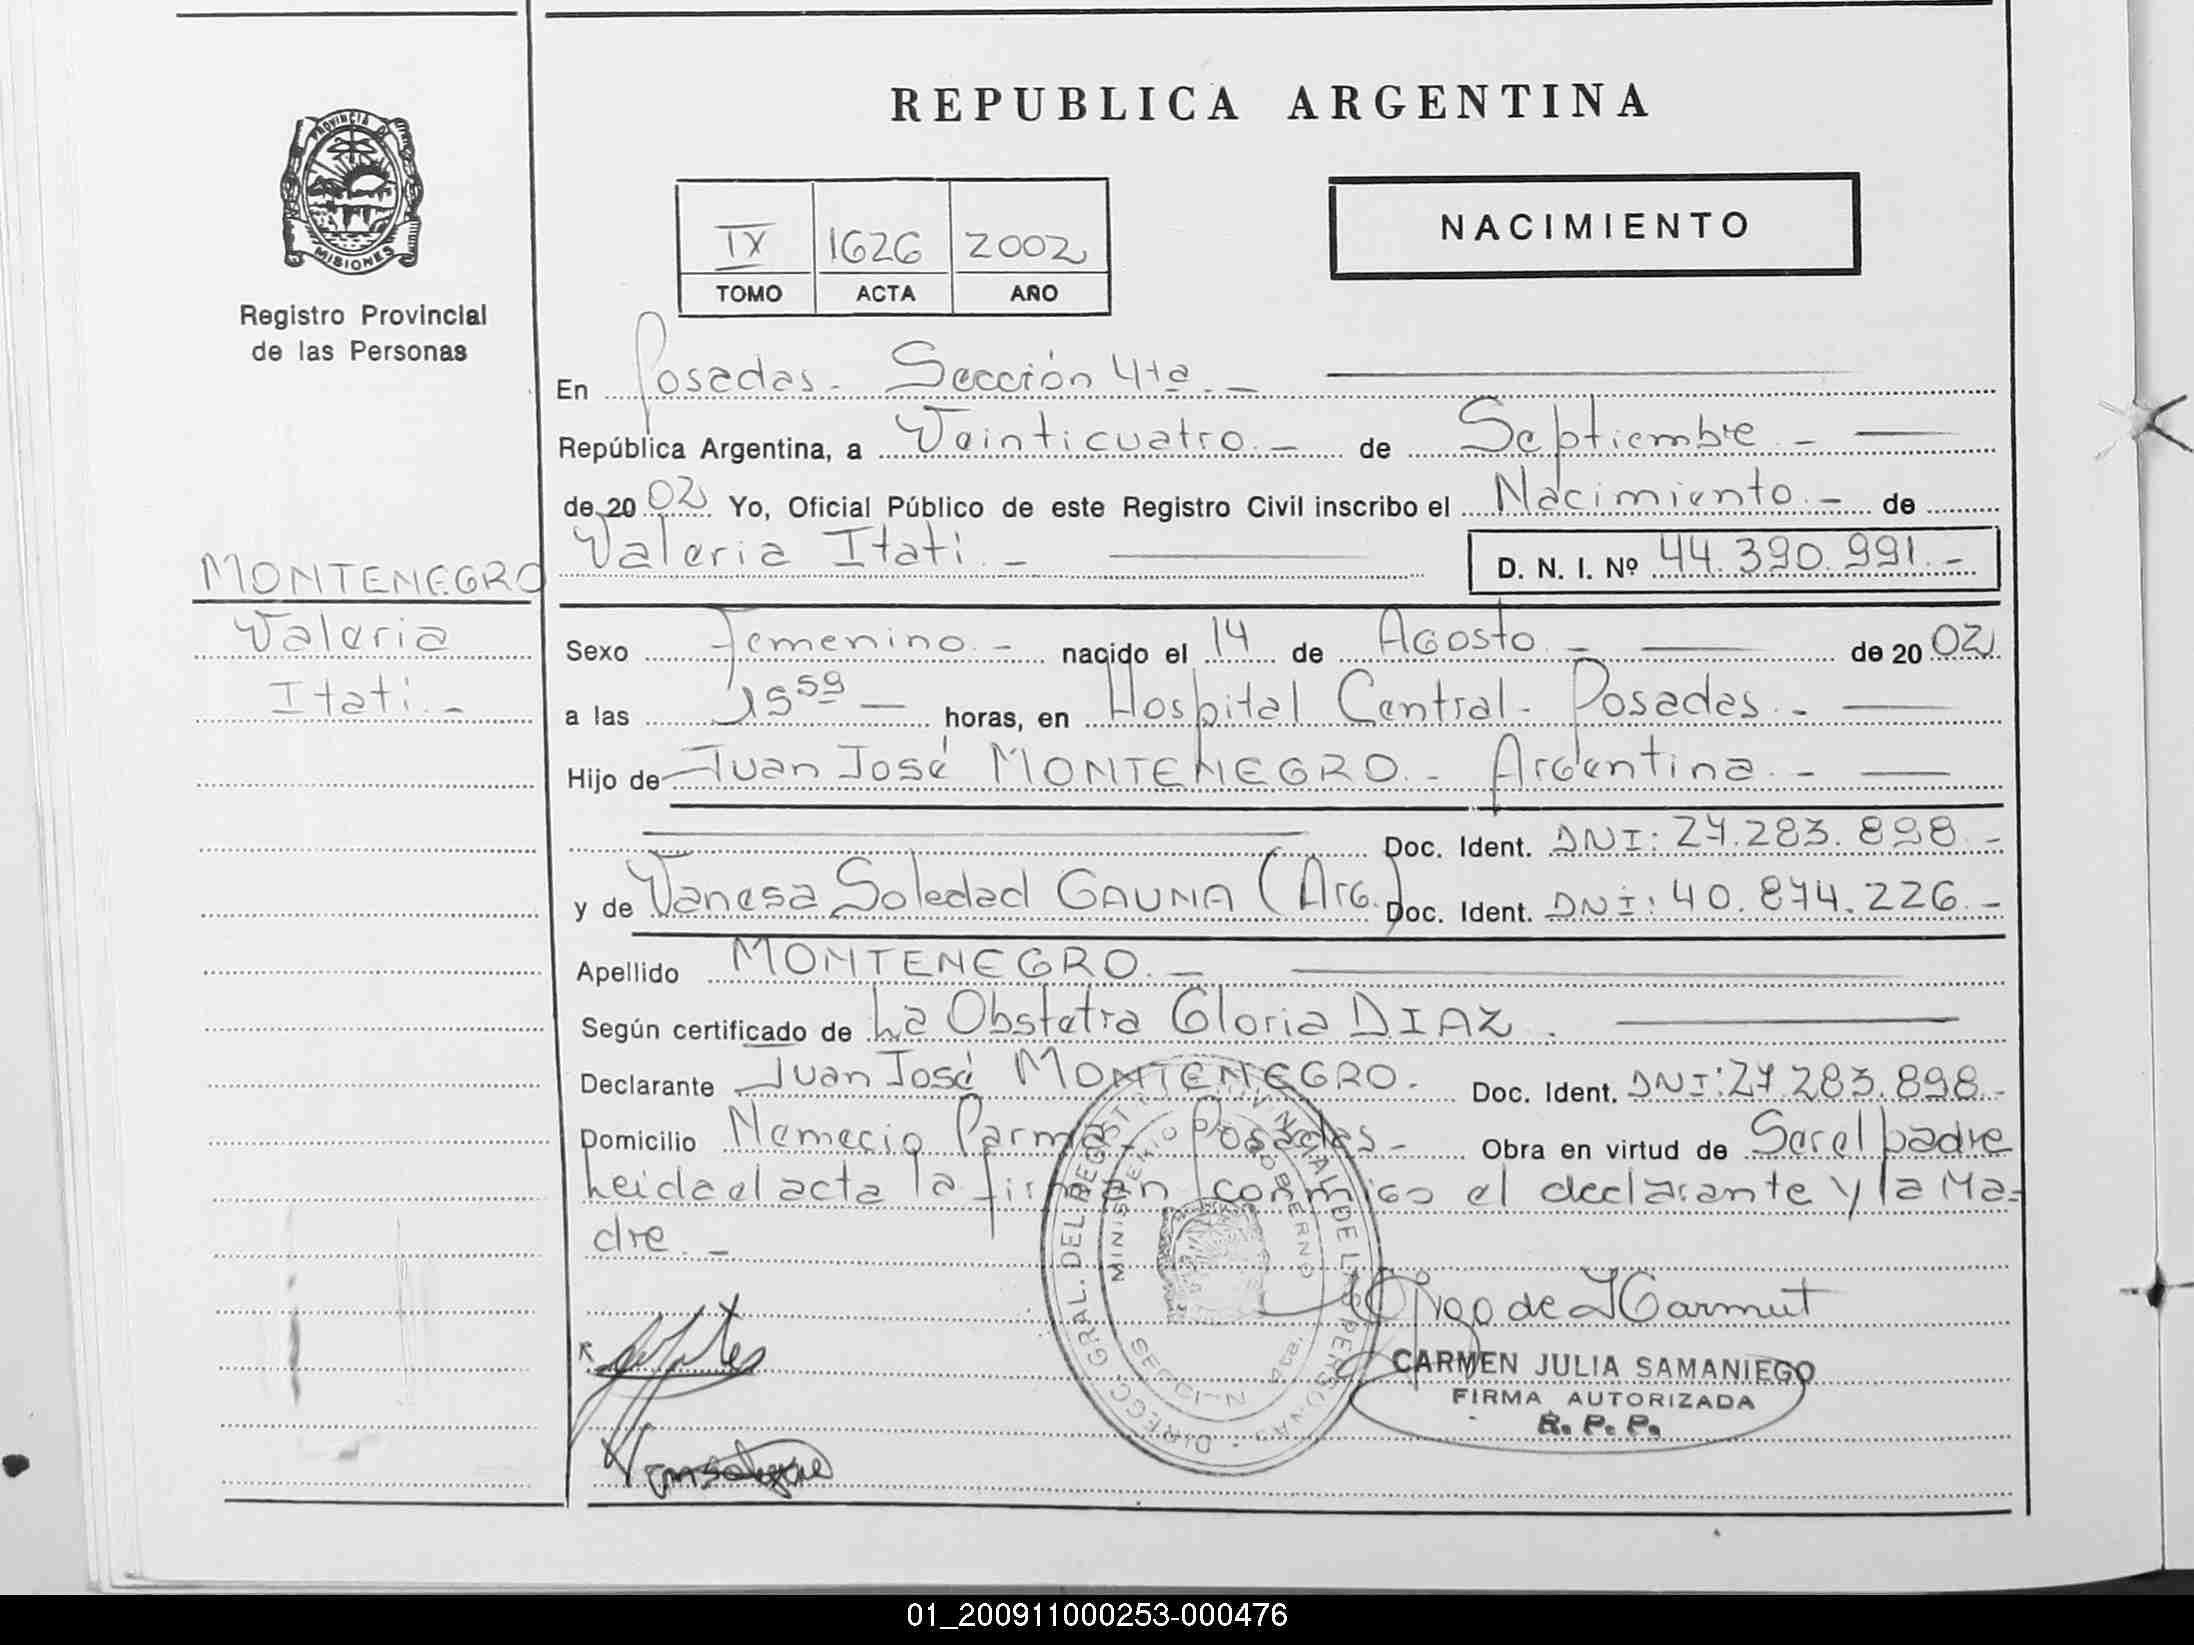 REPUBLICA ARGENTINA
PROVINCIA DE
MISIONES
Registro Provincial
de las Personas
IX 1626 2002
TOMO ACTA AÑO
NACIMIENTO
En Posadas.- Sección 4ta.-
República Argentina, a Veinticuatro.- de Septiembre.-
de 2002 Yo, Oficial Público de este Registro Civil inscribo el Nacimiento.- de
Valeria Itati.- D. N. I. Nº 44.390.991.-
MONTENEGRO
Valeria
Itati.-
Sexo Femenino.- nacido el 14 de Agosto.- de 2002
a las 15 59 horas, en Hospital Central- Posadas.-
Hijo de Juan José MONTENEGRO.- Argentina.-
Doc. Ident. DNI: 27.283.898.-
y de Vanesa Soledad GAUNA (Arg.) Doc. Ident. DNI: 40.874.226.-
Apellido MONTENEGRO.-
Según certificado de La Obstetra Gloria DIAZ.
Declarante Juan José MONTENEGRO.- Doc. Ident. DNI: 27.283.898.-
Domicilio Nemecio Parma- Posadas- Obra en virtud de Ser el padre
Leida el acta la firman conmigo el declarante y la Ma-
dre.-
DIRECC. GRAL. DEL REGISTRO PROVINCIAL DE LAS PERSONAS
MINISTERIO DE GOBIERNO
SECCION 4ta.
CARMEN JULIA SAMANIEGO
FIRMA AUTORIZADA
R. P. P.
01_200911000253-000476